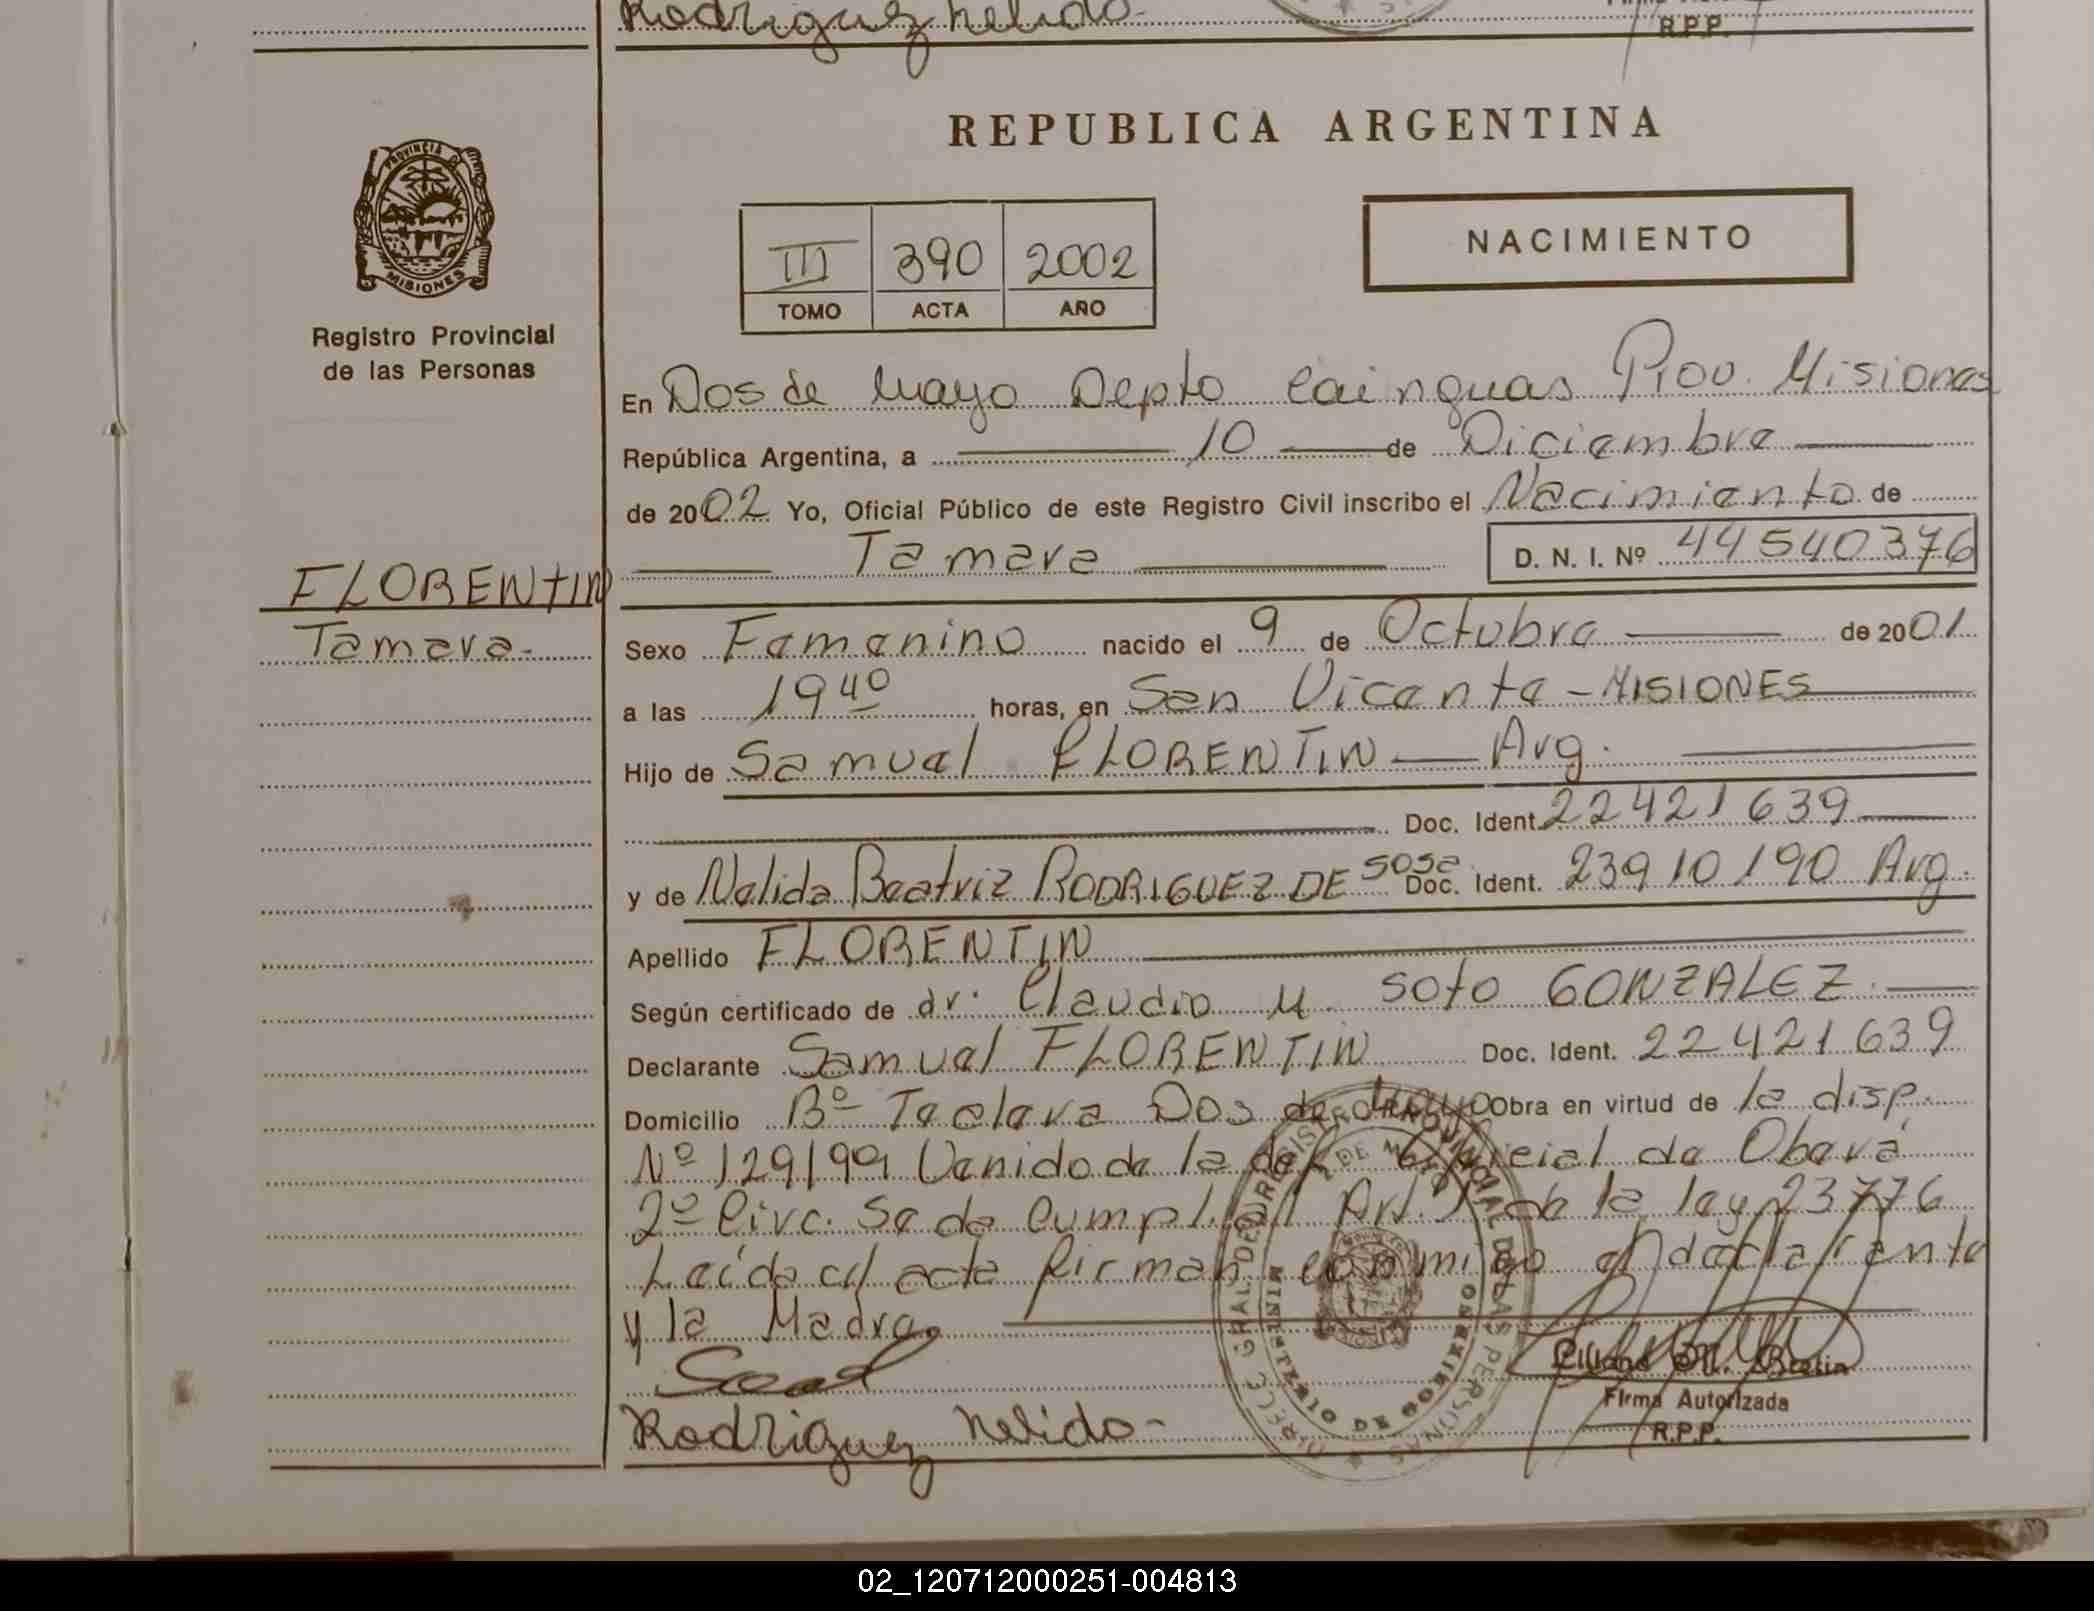 Rodriguez Nelida-
R.P.P.
REPUBLICA ARGENTINA
PROVINCIA DE
MISIONES
Registro Provincial
de las Personas
III 390 2002
TOMO ACTA AÑO
NACIMIENTO
En Dos de Mayo Depto Cainguas Prov. Misiones
República Argentina, a 10 de Diciembre
de 2002 Yo, Oficial Público de este Registro Civil inscribo el Nacimiento de
Tamara D. N. I. Nº 44540376
FLORENTIN
Tamara-
Sexo Femenino nacido el 9 de Octubre de 2001
a las 19 40 horas, en San Vicente - MISIONES
Hijo de Samuel FLORENTIN — Arg.
Doc. Ident. 22421639
y de Nelida Beatriz RODRIGUEZ DE SOSA Doc. Ident. 23910190 Arg.
Apellido FLORENTIN
Según certificado de dr. Claudio M. SOTO GONZALEZ
Declarante Samuel FLORENTIN Doc. Ident. 22421639
Domicilio Bº Dos de Mayo Obra en virtud de la disp.
Nº 129/99 Venido de la de Oberá
2º Circ. Se da cumpl. al Art. de la ley 23776
Leída el acta firman conmigo el declarante
y la Madre
Rodriguez Nelida-
Firma Autorizada
R.P.P.
DIRECC. GRAL. DEL REGISTRO PROVINCIAL DE LAS PERSONAS
MINISTERIO DE GOBIERNO
02_120712000251-004813